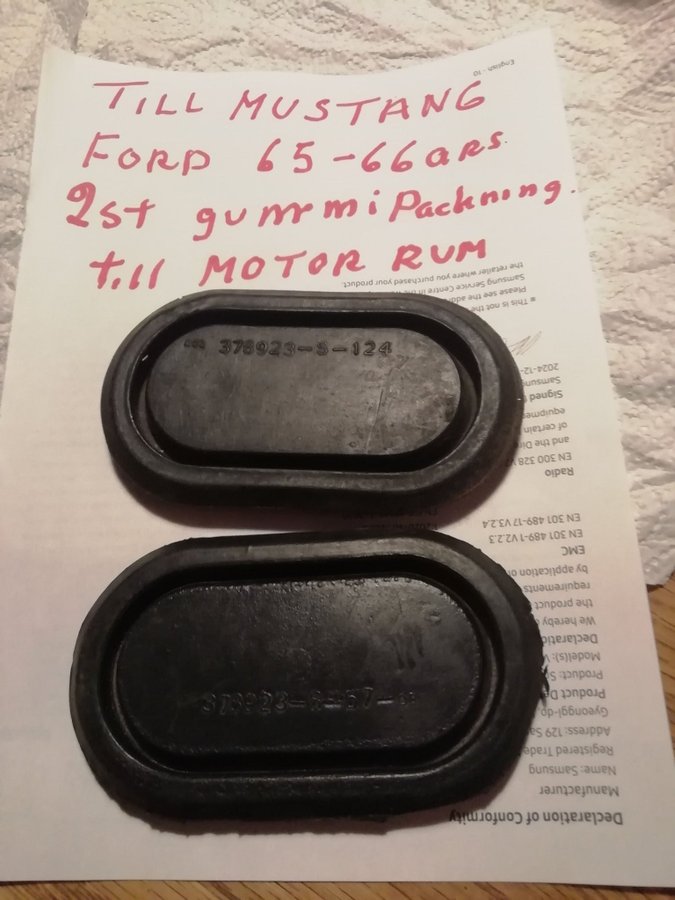 English - 10
TILL MUSTANG
FORD 65-66ars.
2st gummi Packning.
till MOTOR RUM
378923-S-124
Declaration of Conformity
Manufacturer
Name: Samsung
Registered Trade
Address: 129 Sa
Gyeonggi-do
Product De
Product: S
Model(s): V
Declaratio
We hereby
the product
requirements
by application o
EMC
EN 301 489-1 V2.2.3
EN 301 489-17 V3.2.4
Radio
EN 300 328 V
and the Di
of certain
equipmen
Signed
Samsung
2024-12-
This is not the
Please see the add
Samsung Service Centre in the
the retailer where you purchased your product.